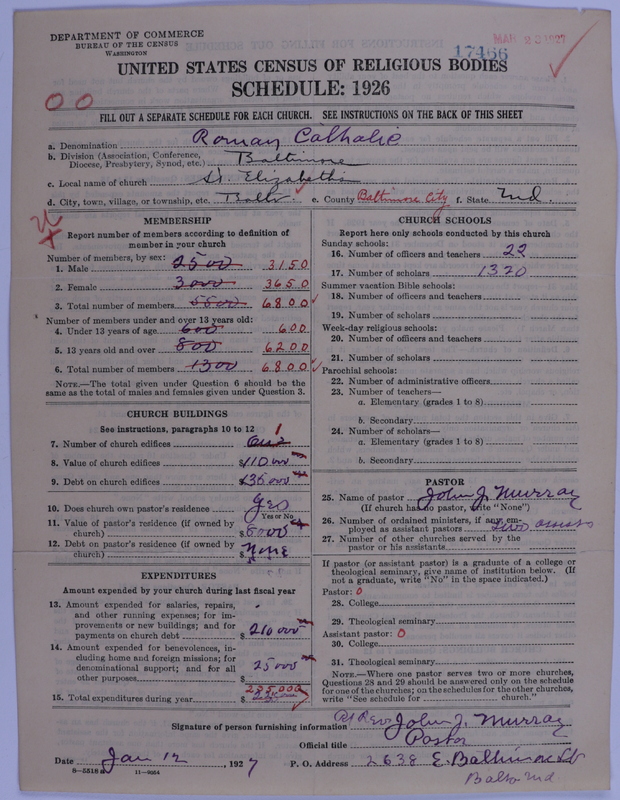 DEPARTMENT OF COMMERCE
BUREAU OF THE CENSUS
WASHINGTON
MAR 23 1927
17466
UNITED STATES CENSUS OF RELIGIOUS BODIES
SCHEDULE: 1926
FILL OUT A SEPARATE SCHEDULE FOR EACH CHURCH. SEE INSTRUCTIONS ON THE BACK OF THIS SHEET
a. Denomination Roman Catholic
b. Division (Association, Conference, Diocese, Presbytery, Synod, etc.) Baltimore
c. Local name of church St. Elizabeths
d. City, town, village, or township, etc. Balto. e. County Baltimore City f. State Md.
MEMBERSHIP
Report number of members according to definition of
member in your church
Number of members, by sex:
1. Male 2500 3150
2. Female 3000 3650
3. Total number of members 5500 6800
Number of members under and over 13 years old:
4. Under 13 years of age 600 600
5. 13 years old and over 800 6200
6. Total number of members 1300 6800
NOTE.—The total given under Question 6 should be the
same as the total of males and females given under Question 3.
CHURCH BUILDINGS
See instructions, paragraphs 10 to 12
7. Number of church edifices One 1
8. Value of church edifices $110000
9. Debt on church edifices $135000
10. Does church own pastor's residence? Yes
Yes or No
11. Value of pastor's residence (if owned by
church) $
12. Debt on pastor's residence (if owned by
church) $ None
EXPENDITURES
Amount expended by your church during last fiscal year
13. Amount expended for salaries, repairs,
and other running expenses; for im-
provements or new buildings; and for
payments on church debt $ 210000
14. Amount expended for benevolences, in-
cluding home and foreign missions; for
denominational support; and for all
other purposes $ 25000
15. Total expenditures during year $ 235,000
CHURCH SCHOOLS
Report here only schools conducted by this church
Sunday schools:
16. Number of officers and teachers 22
17. Number of scholars 1320
Summer vacation Bible schools:
18. Number of officers and teachers
19. Number of scholars
Week-day religious schools:
20. Number of officers and teachers
21. Number of scholars
Parochial schools:
22. Number of administrative officers
23. Number of teachers—
a. Elementary (grades 1 to 8)
b. Secondary
24. Number of scholars—
a. Elementary (grades 1 to 8)
b. Secondary
PASTOR
25. Name of pastor John J. Murray
(If church has no pastor, write "None")
26. Number of ordained ministers, if any, em-
ployed as assistant pastors two assists
27. Number of other churches served by the
pastor or his assistants
If pastor (or assistant pastor) is a graduate of a college or
theological seminary, give name of institution below. (If
not a graduate, write "No" in the space indicated.)
Pastor: 0
28. College
29. Theological seminary
Assistant pastor: 0
30. College
31. Theological seminary
NOTE.—Where one pastor serves two or more churches,
Questions 28 and 29 should be answered only on the schedule
for one of the churches; on the schedules for the other churches,
write "See schedule for church."
Signature of person furnishing information Rt Rev John J. Murray
Official title Pastor
Date Jan 12, 1927 P. O. Address 2638 E. Baltimore St
8—5518 a 11—9054 Balto Md